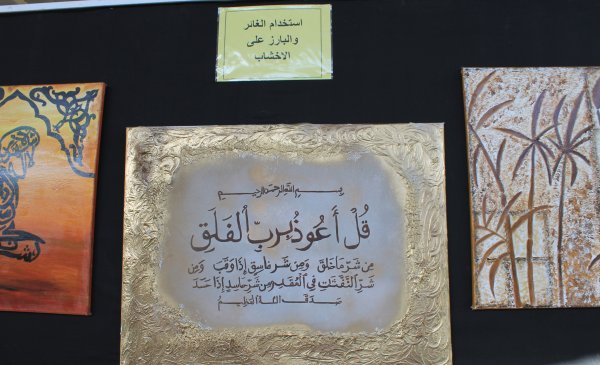 استخدام الغائر
والبارز على
الاخشاب
بسم الله الرحمن الرحيم
قُلْ أَعُوذُ بِرَبِّ الْفَلَقِ
مِن شَرِّ مَا خَلَقَ وَمِن شَرِّ غَاسِقٍ إِذَا وَقَبَ وَمِن
شَرِّ النَّفَّٰثَٰتِ فِي الْعُقَدِ وَمِن شَرِّ حَاسِدٍ إِذَا حَسَدَ
صدق الله العظيم